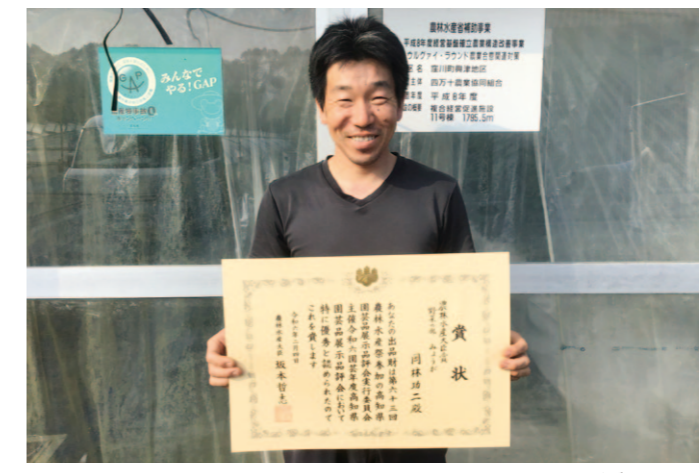 みんなで
やる!GAP
GAP
農林水産省補助事業
平成8年度経営基盤確立農業構造改善事業
ウルグァイ・ラウンド農業合意関連対策
名 窪川町興津地区
主体 四万十農業協同組合
年度 平成8年度
の概要 複合経営促進施設
11号棟 1785.5m
賞状
農林水産大臣賞
野菜の部 みょうが
功二殿
あなたの出品財は第六十三回
農林水産祭参加の高知県
園芸品展示品評会実行委員会
主催令和六園芸年度高知県
園芸品展示品評会において
特に優秀と認められたので
これを賞します
農林水産大臣 坂本哲志